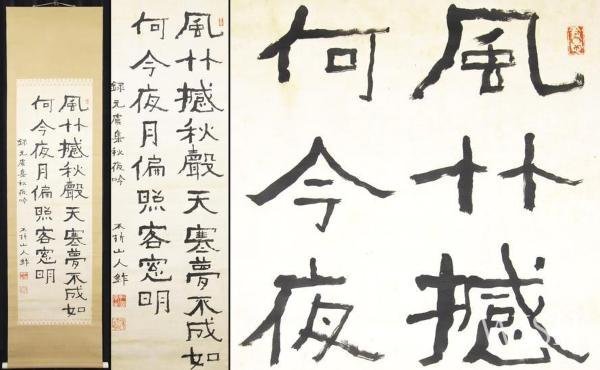 風竹撼秋聲天寒夢不成如
何今夜月偏照客窻明
録元虞集秋夜吟
不折山人鈼
風竹撼秋聲天寒夢不成如
何今夜月偏照客窻明
録元虞集秋夜吟
不折山人鈼
風竹撼
何今夜